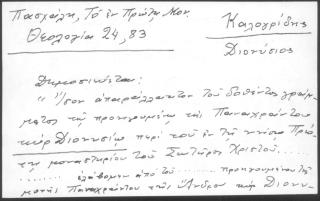 Πασχάλη, Τὸ ἐν Πρώτῃ Μον.
Θεολογία 24, 83
Καλογρίδης
Διονύσιος
Δημοσιεύεται:
"Ἴσον ἀπαράλλακτον τοῦ δοθέντος γράμ-
ματος τῷ προηγουμένῳ τῆς Παναχράντου
κὺρ Διονυσίῳ περὶ τοῦ ἐν τῇ νήσῳ
τῃ μοναστηρίου τοῦ Σωτῆρος Χριστοῦ....
.... ἐλάβομεν ἀπὸ τοῦ ........ προηγουμένου τῆς
μονῆς Παναχράντου τῆς Ἄνδρου κὺρ Διονυ-